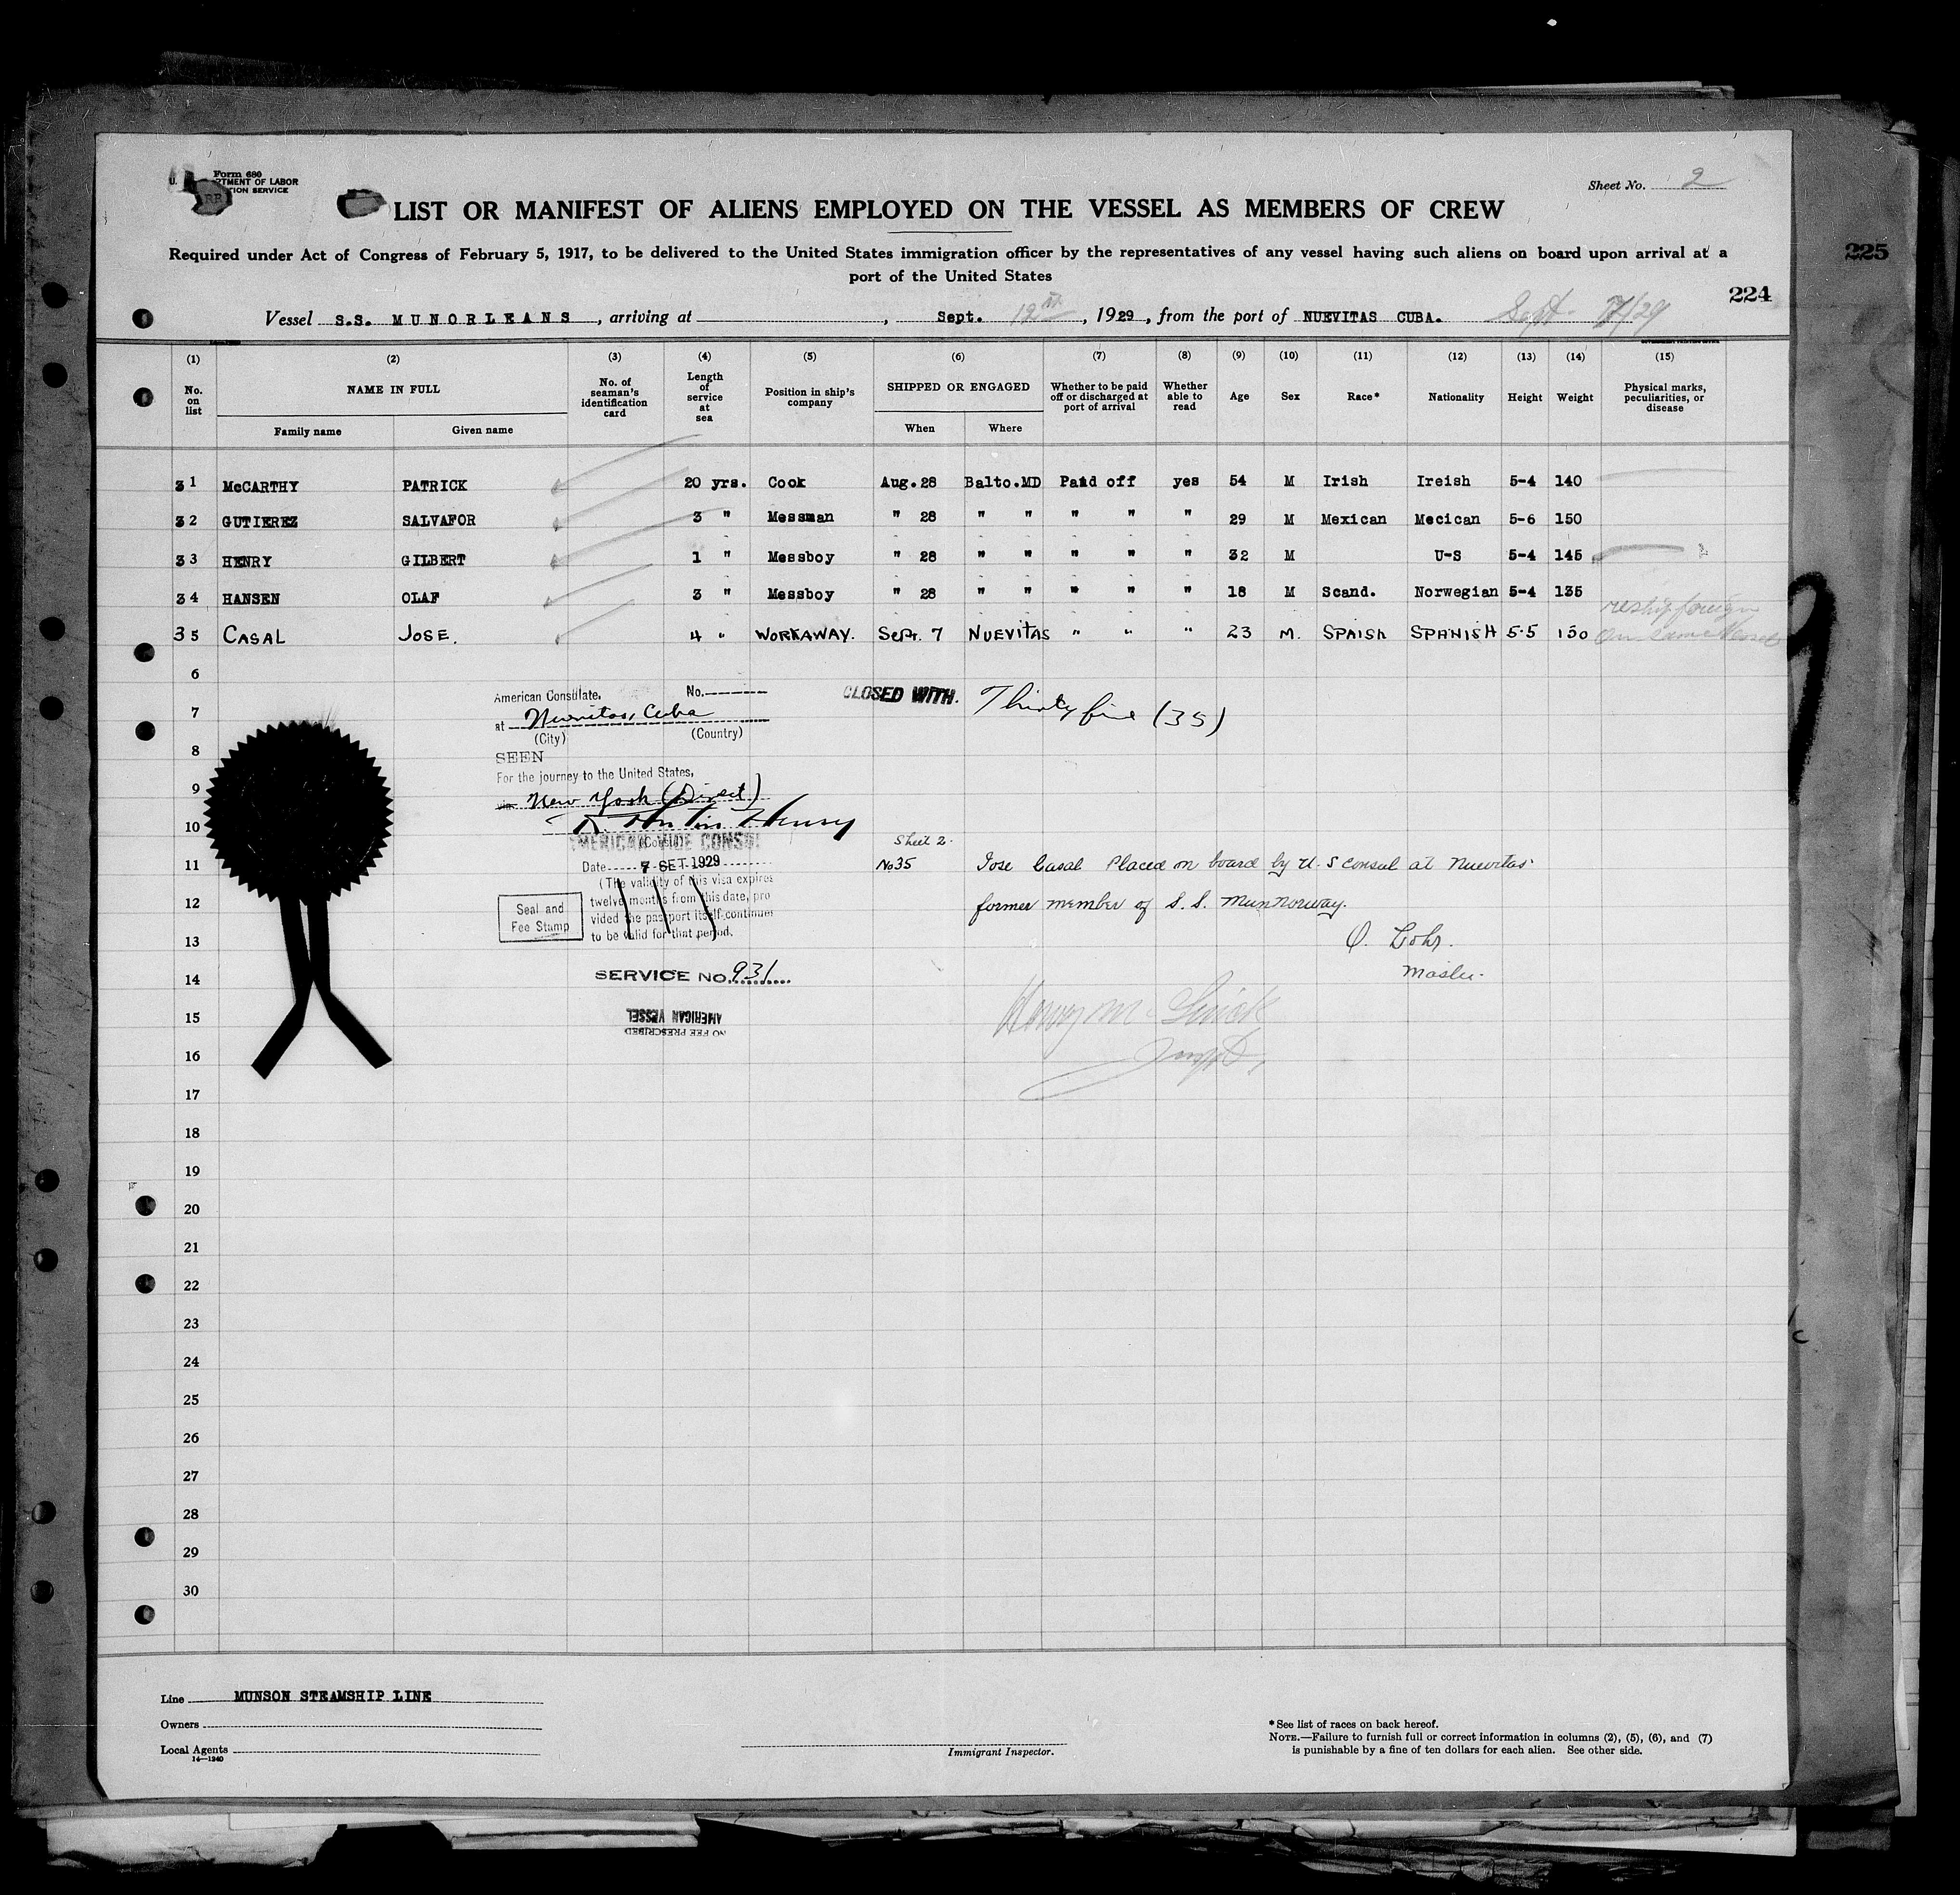 Form 680
U. RTMENT OF LABOR
TION SERVICE
Sheet No. 2
LIST OR MANIFEST OF ALIENS EMPLOYED ON THE VESSEL AS MEMBERS OF CREW
Required under Act of Congress of February 5, 1917, to be delivered to the United States immigration officer by the representatives of any vessel having such aliens on board upon arrival at a
port of the United States
225
224
Vessel S.S. MUNORLEANS, arriving at , Sept. 12th, 1929, from the port of NUEVITAS CUBA. Sept
(1) (2) (3) (4) (5) (6) (7) (8) (9) (10) (11) (12) (13) (14) (15)
No. on list NAME IN FULL No. of seaman's identification card Length of service at sea Position in ship's company SHIPPED OR ENGAGED Whether to be paid off or discharged at port of arrival Whether able to read Age Sex Race* Nationality Height Weight Physical marks, peculiarities, or disease
Family name Given name When Where
31 McCARTHY PATRICK 20 yrs. Cook Aug.28 Balto.MD Paid off yes 54 M Irish Ireish 5-4 140
32 GUTIEREZ SALVAFOR 3 " Messman " 28 " " " " " 29 M Mexican Mecican 5-6 150
33 HENRY GILBERT 1 " Messboy " 28 " " " " " 32 M U-S 5-4 145
34 HANSEN OLAF 3 " Messboy " 28 " " " " " 18 M Scand. Norwegian 5-4 135
reship foreign
35 CASAL JOSE. 4 " WORKAWAY. Sept. 7 NUEVITAS " " " 23 M. SPAISh SPANISH 5.5 150 on same Vessel
6
American Consulate, No.
CLOSED WITH. Thirty five (35)
7
at Nuevitas, Cuba
(City) (Country)
8
SEEN
For the journey to the United States,
9
via New York (Direct)
10
Sheet 2.
AMERICAN VICE CONSUL
(Consul)
11
Date 7 SET 1929
No35 Jose Casal Placed on board by U.S consul at Nuevitas
(The validity of this visa expires
12
twelve months from this date, pro
former member of S.S. Munnorway.
vided the passport itself continues
Seal and
Fee Stamp
to be valid for that period.
13
O. Lohr.
14
SERVICE No. 931
Master.
15
AMERICAN VESSEL
NO FEE PRESCRIBED
16
Inspt.
17
18
19
20
21
22
23
24
25
26
27
28
29
30
Line MUNSON STEAMSHIP LINE
Owners
Local Agents
14—1240
Immigrant Inspector.
*See list of races on back hereof.
NOTE.—Failure to furnish full or correct information in columns (2), (5), (6), and (7)
is punishable by a fine of ten dollars for each alien. See other side.